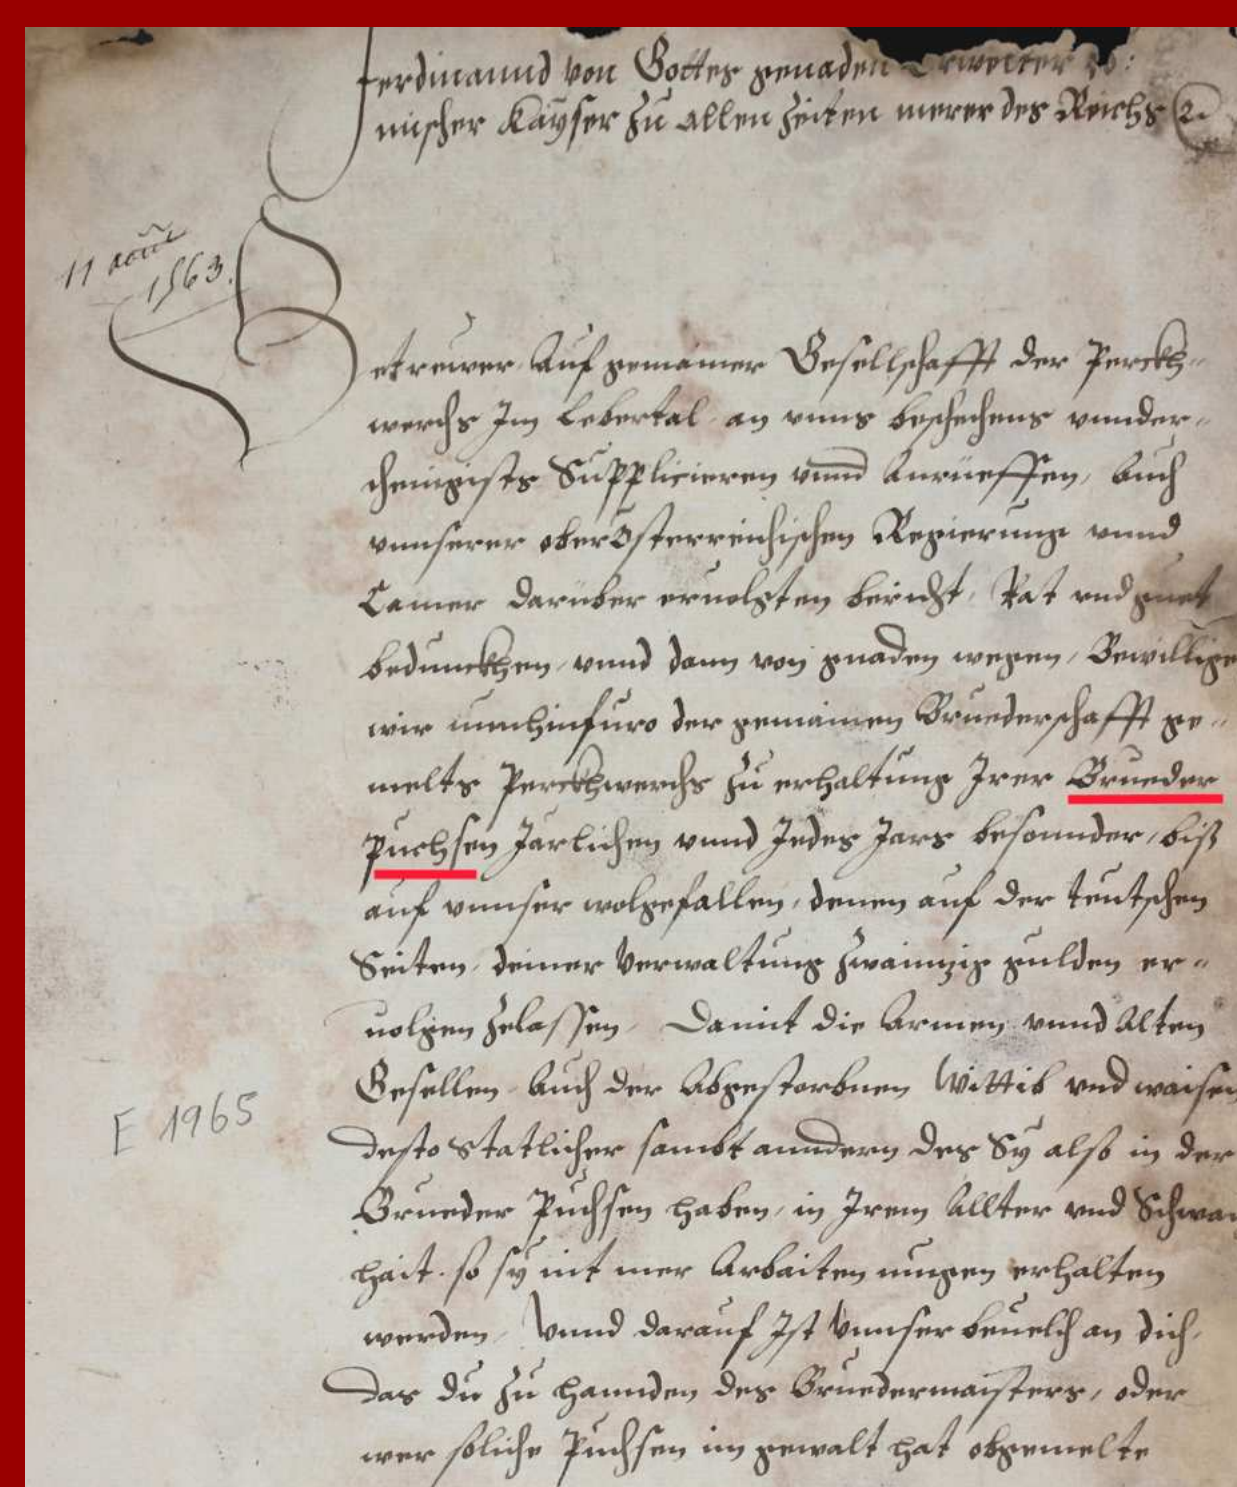 Ferdinannd von Gottes genaden Erwelter Rö:
mischer Kayser zu allen Zeiten merer des Reichs 2.
11 aoust
1563.
Getrewer. Auf gemainer Gesellschafft der Perckh-
werchs Im Lebertal an unns beschehens unnder-
thenigists Supplicieren unnd Anrüeffen, Auch
unnserer oberÖsterreichischen Regierung unnd
Camer darüber ervolgten bericht, Rat und guet
bedunckhen, unnd dann von gnaden wegen, Bewillige
wir nunhinfuro der gemainen Bruederschafft ge-
melts Perckhwerchs zu erhaltung Irer Brueder
Puchsen Jarlichen unnd Jedes Jars besonnder, biß
auf unnser wolgefallen, denen auf der teutschen
Seiten, deiner Verwaltung zwainzig gulden er-
volgen zelassen, Damit die Armen unnd Alten
Gesellen, Auch der Abgestorbnen Wittib und waisen
E 1965
desto statlicher sambt anndern des Sy also in der
Brueder Püchsen haben, in Irem Allter und Schwa
hait, so sy nit mer Arbaiten mugen erhalten
werden, Unnd darauf Ist Unnser bevelch an dich,
Das du zu hannden des Bruedermaisters, oder
wer soliche Püchsen im gewalt hat obgemelte